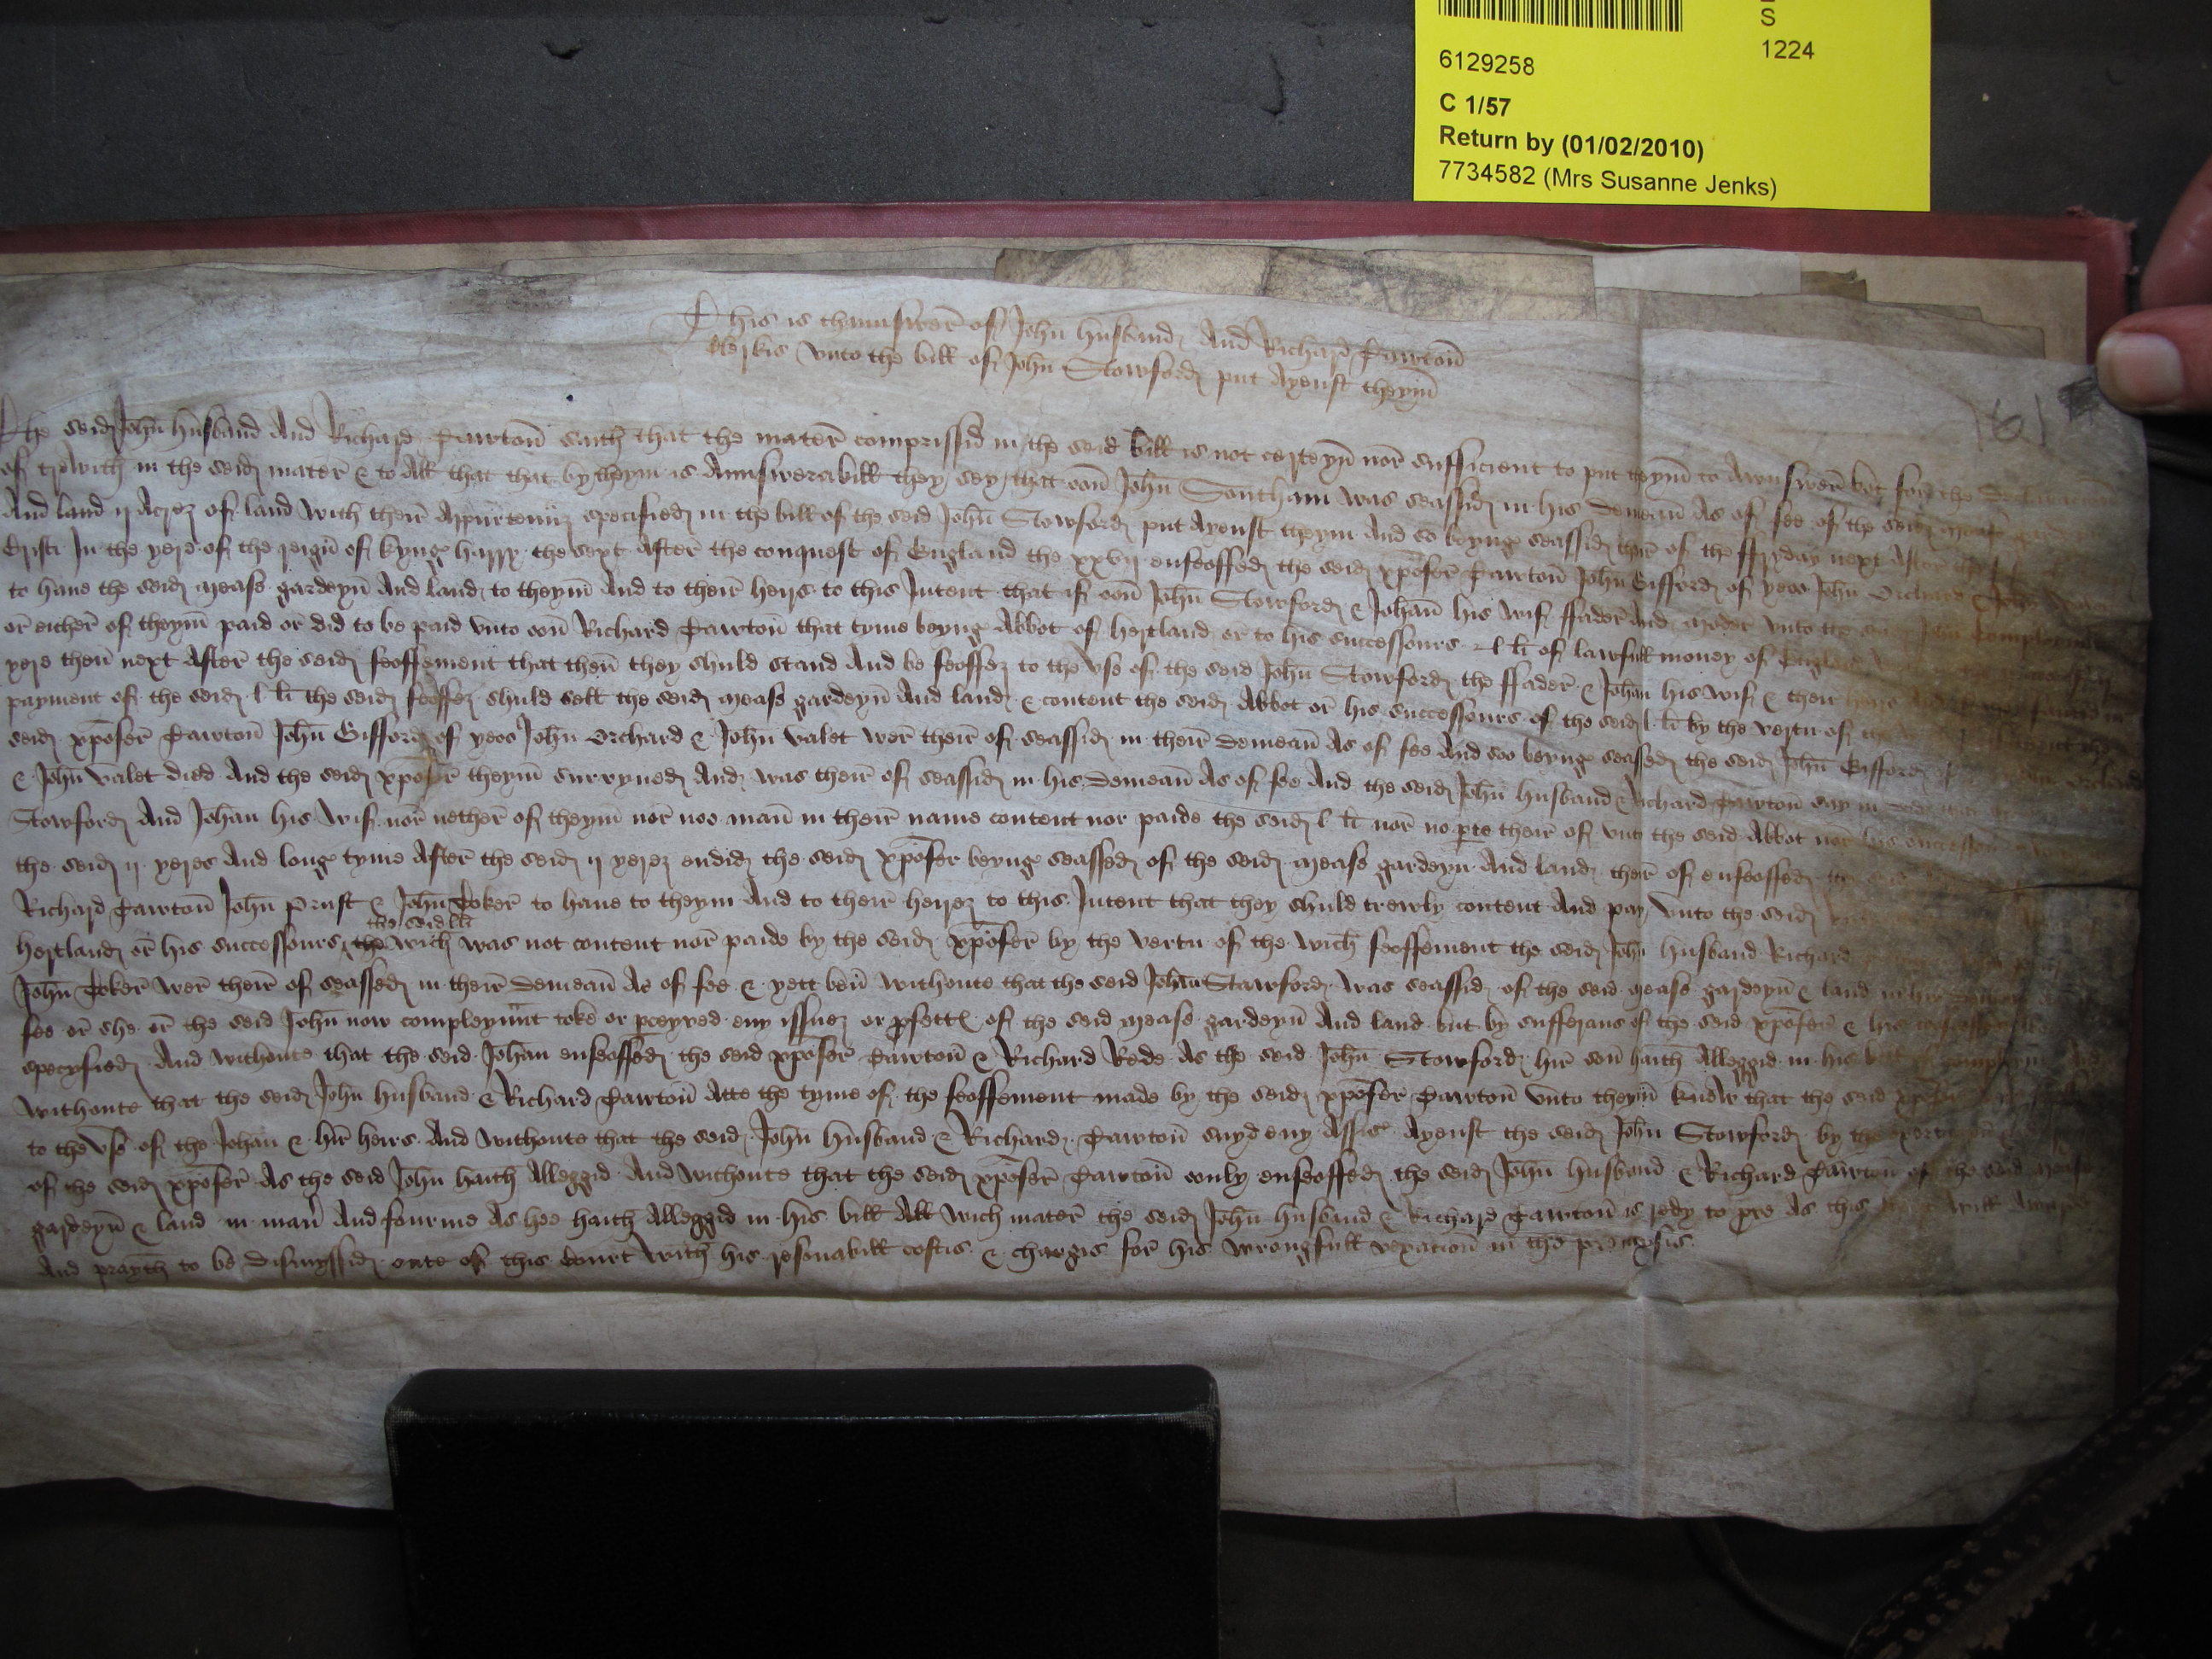 S
1224
6129258
C 1/57
Return by (01/02/2010)
7734582 (Mrs Susanne Jenks)
This is thaunswer̄ of John̄ husband And Richard Pawton̄
Clerkis vnto the bill of John̄ Stowford put Ayenst theym̄
161
The seid John̄ husband And Richard Pawton̄ saith that the mater̄ comprissid in the seid bill is not certeyn̄ nor̄ sufficient to put theym̄ to Awnswer̄ but for the
of trewith in the seid mater̄ & to All that that by theym is Aunswerabill they sey that oon̄ John̄ Southam was seassid in his demean̄ As of fee of the seid mease
And land ij Acrez of land with their̄ Appurtenῡz specified in the bill of the seid John̄ Stowford put Ayenst theym And so beyng seassid ther̄ of the ffryday next After the
Cristi In the yere of the reign̄ of kyng harry the sext After̄ the conquest of England the xxvij enfeoffed the seid xp̄ofer̄ Pawton̄ John̄ Gifford of yeoo John̄ Orchard & John̄
to haue the seid mease gardeyn̄ And land to theym̄ And to their̄ heirs to this Intent that if oon̄ John̄ Stowford & Johan̄ his wif ffader̄ And moder̄ vnto the seid John Compleynaunt
or either̄ of theym̄ paid or did to be paid vnto oon̄ Richard Pawton̄ that tyme beyng Abbot of hertland or to his successours l li of lawfull money of England
yere then̄ next After̄ the seid feoffement that then̄ they shuld stand And be feoffez to the vse of the seid John̄ Stowford the ffader̄ & Johan̄ his wif & their heirs
payment of the seid l li the seid feoffez shuld sell the seid mease gardeyn̄ And land & content the seid Abbot or̄ his successours of the seid l li by the vertu of the
seid xp̄ofer̄ Pawton̄ John̄ Gifford of yeoo John̄ Orchard & John̄ Valet wer̄ their̄ of seassid in their̄ demean̄ As of fee And soo beyng seassed the seid John̄ Gifford
& John̄ Valet died And the seid xp̄ofer̄ theym̄ survyued And was their̄ of seassid in his demean̄ As of fee And the seid John̄ husband & Richard Pawton̄ say in
Stowford And Johan̄ his wif nor̄ nether̄ of theym̄ nor̄ noo man̄ in their̄ name content nor paide the seid l li nor̄ no p̱te their̄ of vnto the seid Abbot nor his successours
the seid ij yeres And long tyme After̄ the seid ij yerez endid the seid xp̄ofer beyng seassed of the seid mease gardeyn̄ And land ther̄ of enfeoffed
Richard Pawton̄ John̄ Prust & John̄ Toker̄ to haue to theym And to their̄ heirez to this Intent that they shuld trewly content And pay vnto the seid
the seid l li
hertland or̄ his successours the wich was not content nor̄ paide by the seid xp̄ofer̄ by the vertu of the wich feoffement the seid John̄ husband Richard
John̄ Toker̄ wer̄ their̄ of seassed in their̄ demean̄ As of fee & yett ben̄ withoute that the seid Johan̄ Stawford was seassid of the seid mease gardeyn̄ & land in hir demean
fee or̄ she or̄ the seid John̄ now compleynaūt toke or p̱ceyved eny issuez or p̱fettꝭ of the seid mease gardeyn̄ And land but by sufferans of the seid xp̄ofer̄ & his
specyfied And withoute that the seid Johan̄ enfeoffed the seid xp̄ofer̄ Pawton̄ & Richard Rede As the seid John̄ Stowford hir̄ son̄ haith Alleggid in his bill
withoute that the seid John̄ husband & Richard Pawton̄ Atte the tyme of the feoffement made by the seid xp̄ofer̄ Pawton̄ vnto theym̄ knew that the seid xp̄ofer̄
to the vse of the Johan̄ & hir̄ heirs And withoute that the seid John̄ husband & Richard Pawton̄ suyd eny Assise Ayenst the seid John̄ Stowford by the
of the seid xp̄ofer̄ As the seid John̄ haith Alleggid And withoute that the seid xp̄ofer̄ Pawton̄ oonly enfeoffed the seid John̄ husband & Richard Pawton̄ of the seid mease
gardeyn̄ & land in man̄ And fourme As hee haith Alleggid in his bill All wich mater̄ the seid John̄ husband & Richard Pawton̄ is redy to p̱ve As this will Awarde
And prayth to be dismyssid oute of this Court with his resonabill costis & chargis for̄ his wrongfull vexation̄ in the premyssis